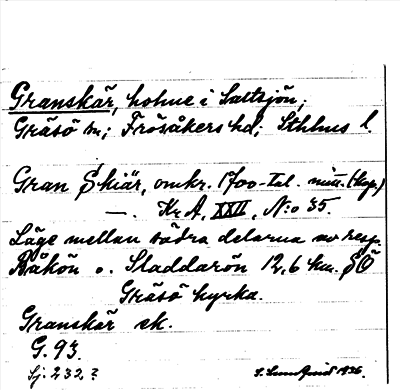 Granskär, holme i Saltsjön,
Gräsö sn; Frösåkers hd; Sthlms l.
Gran Skiär, omkr. 1700-tal. mitt. (kop.)
—. Kr. A, XXII, N:o 35.
Läge mellan södra delarna av resp.
Råkön o. Sladdarön 12,6 km. SÖ
Gräsö kyrka.
Granskär ek.
G. 93.
Sj. 232?
S. Lundquist 1936.